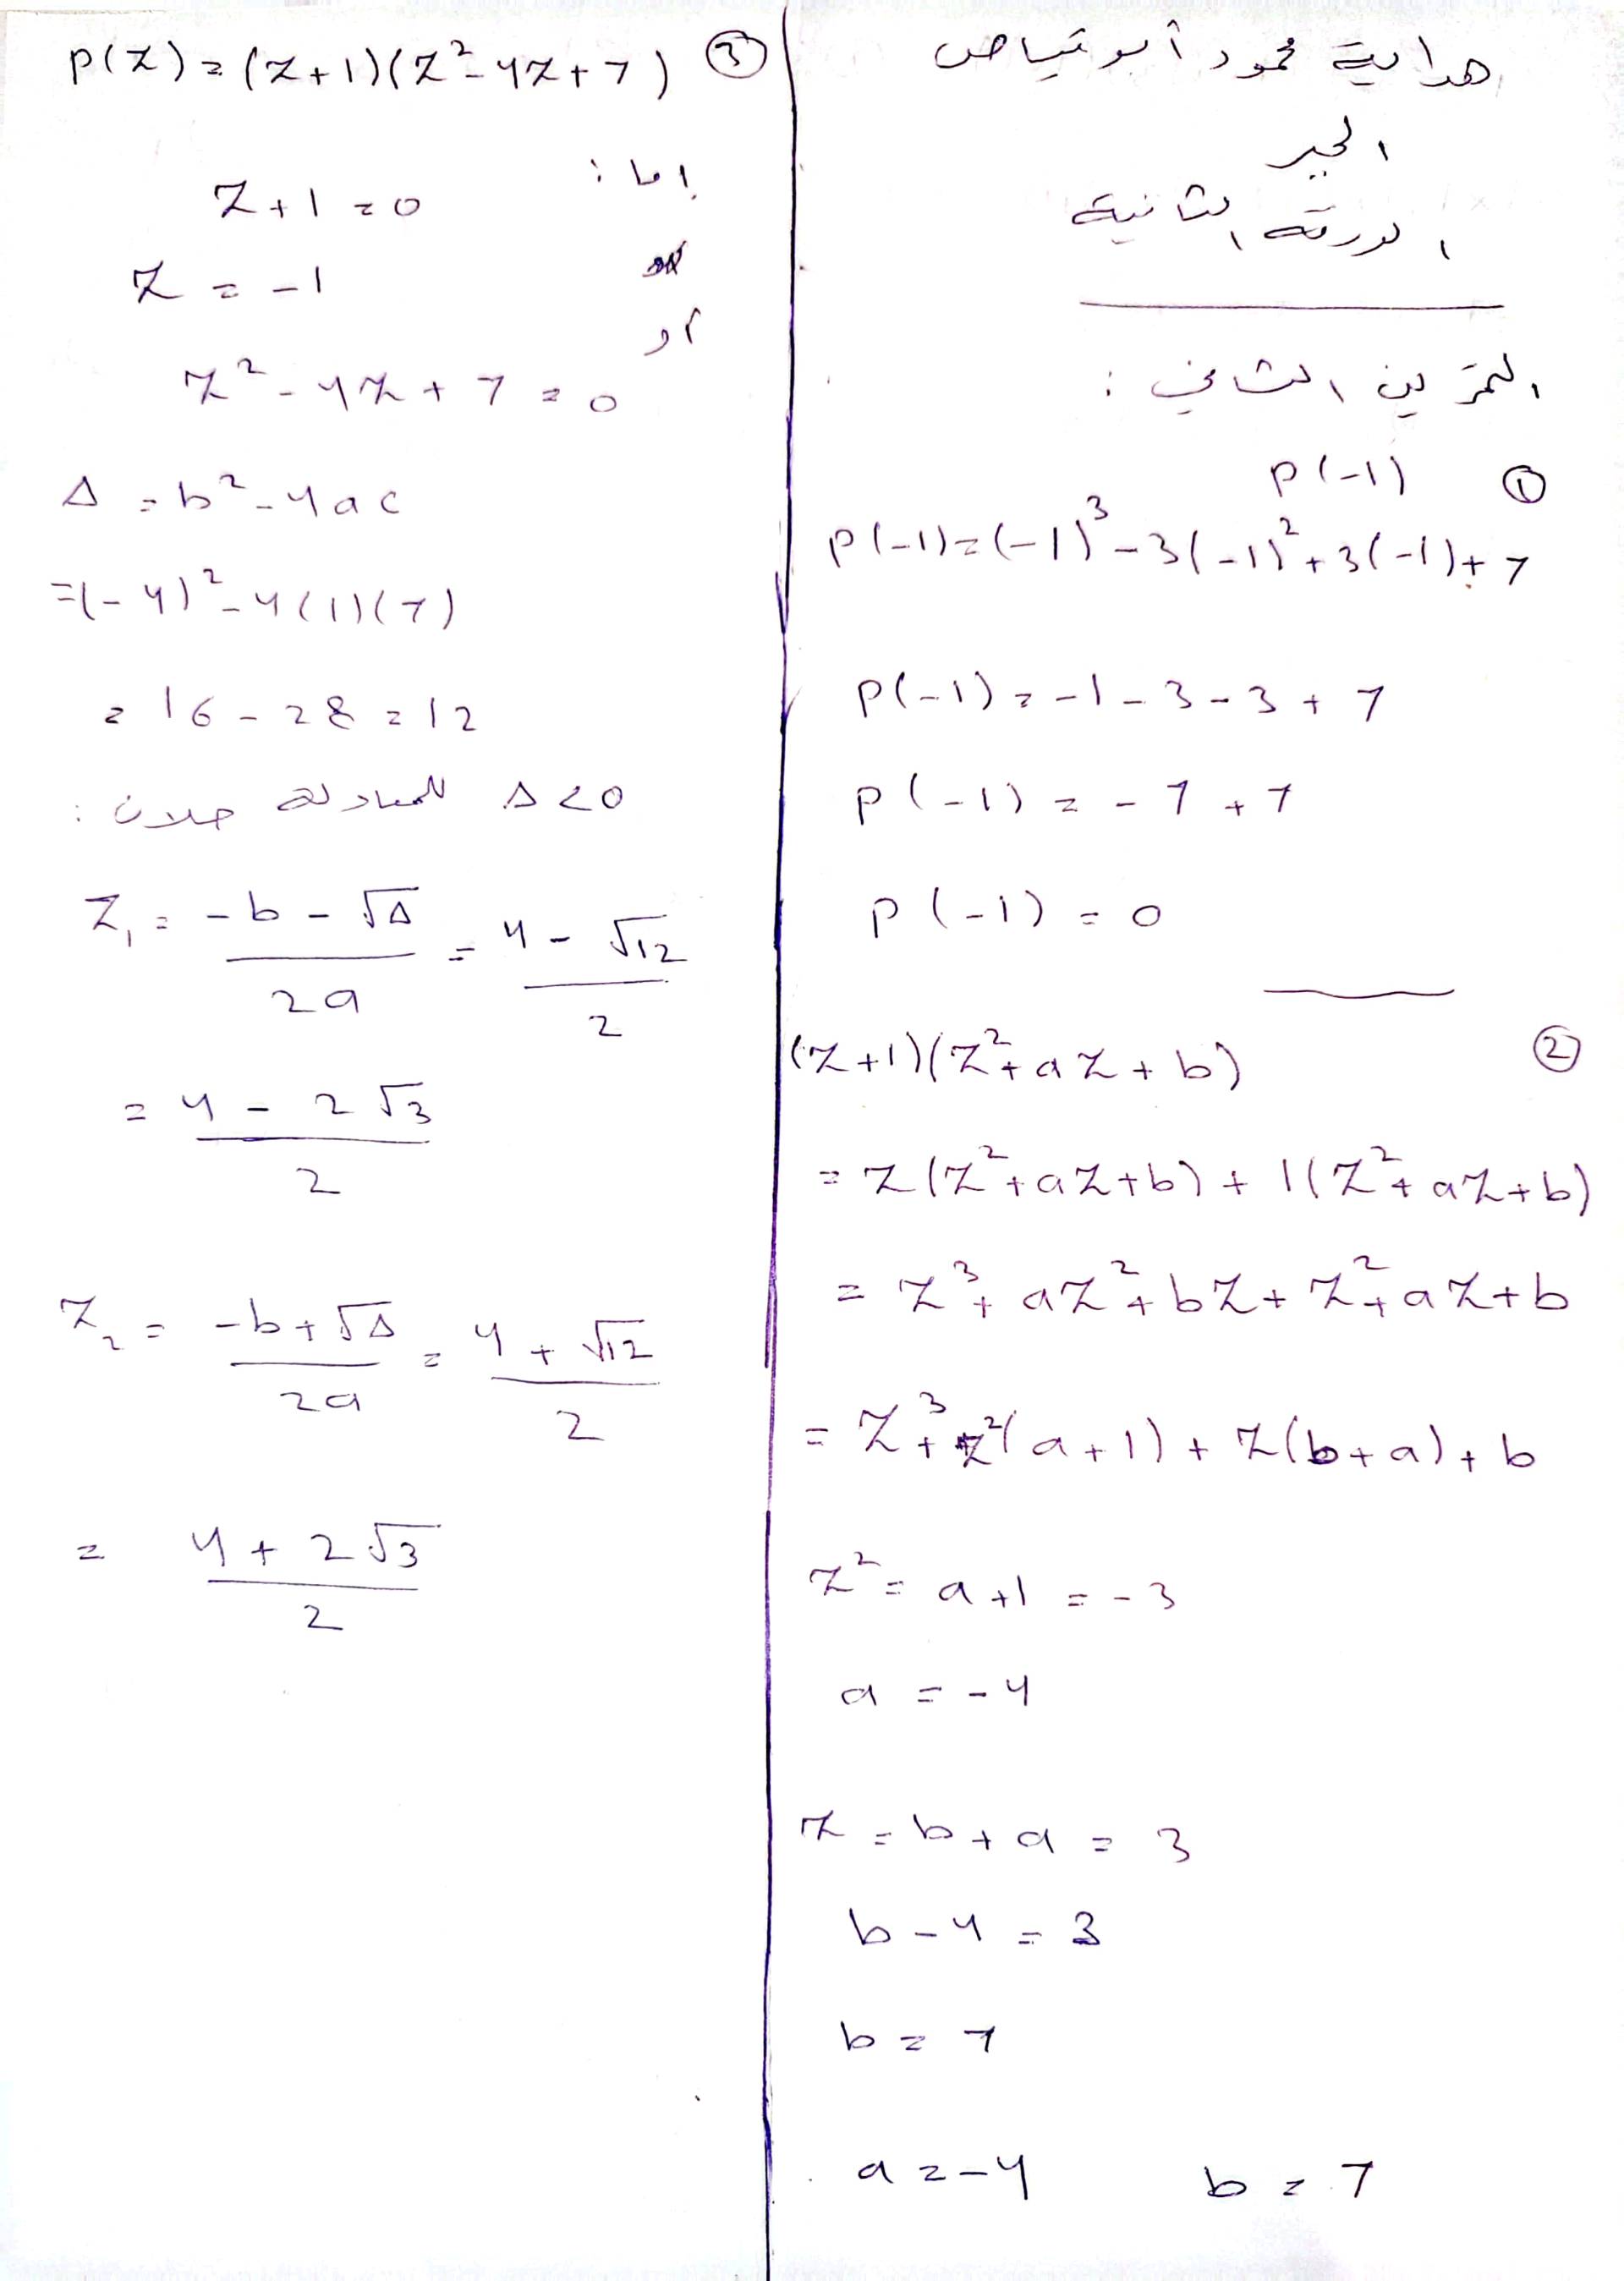 هداية محمود أبو عياص
الجبر
الورقة الثانية
التمرين الثاني :
① P(-1)
P(-1)=(-1)³-3(-1)²+3(-1)+7
P(-1)=-1-3-3+7
P(-1)=-7+7
P(-1)=0
② (Z+1)(Z²+aZ+b)
=Z(Z²+aZ+b)+1(Z²+aZ+b)
=Z³+aZ²+bZ+Z²+aZ+b
=Z³+Z²(a+1)+Z(b+a)+b
Z²=a+1=-3
a=-4
Z=b+a=3
b-4=3
b=7
a=-4 b=7
③ P(Z)=(Z+1)(Z²-4Z+7)
إما :
Z+1=0
Z=-1
أو
Z²-4Z+7=0
Δ=b²-4ac
=(-4)²-4(1)(7)
=16-28=12
Δ<0 للمعادلة حلان :
Z₁=(-b-√Δ)/2a=(4-√12)/2
=(4-2√3)/2
Z₂=(-b+√Δ)/2a=(4+√12)/2
=(4+2√3)/2